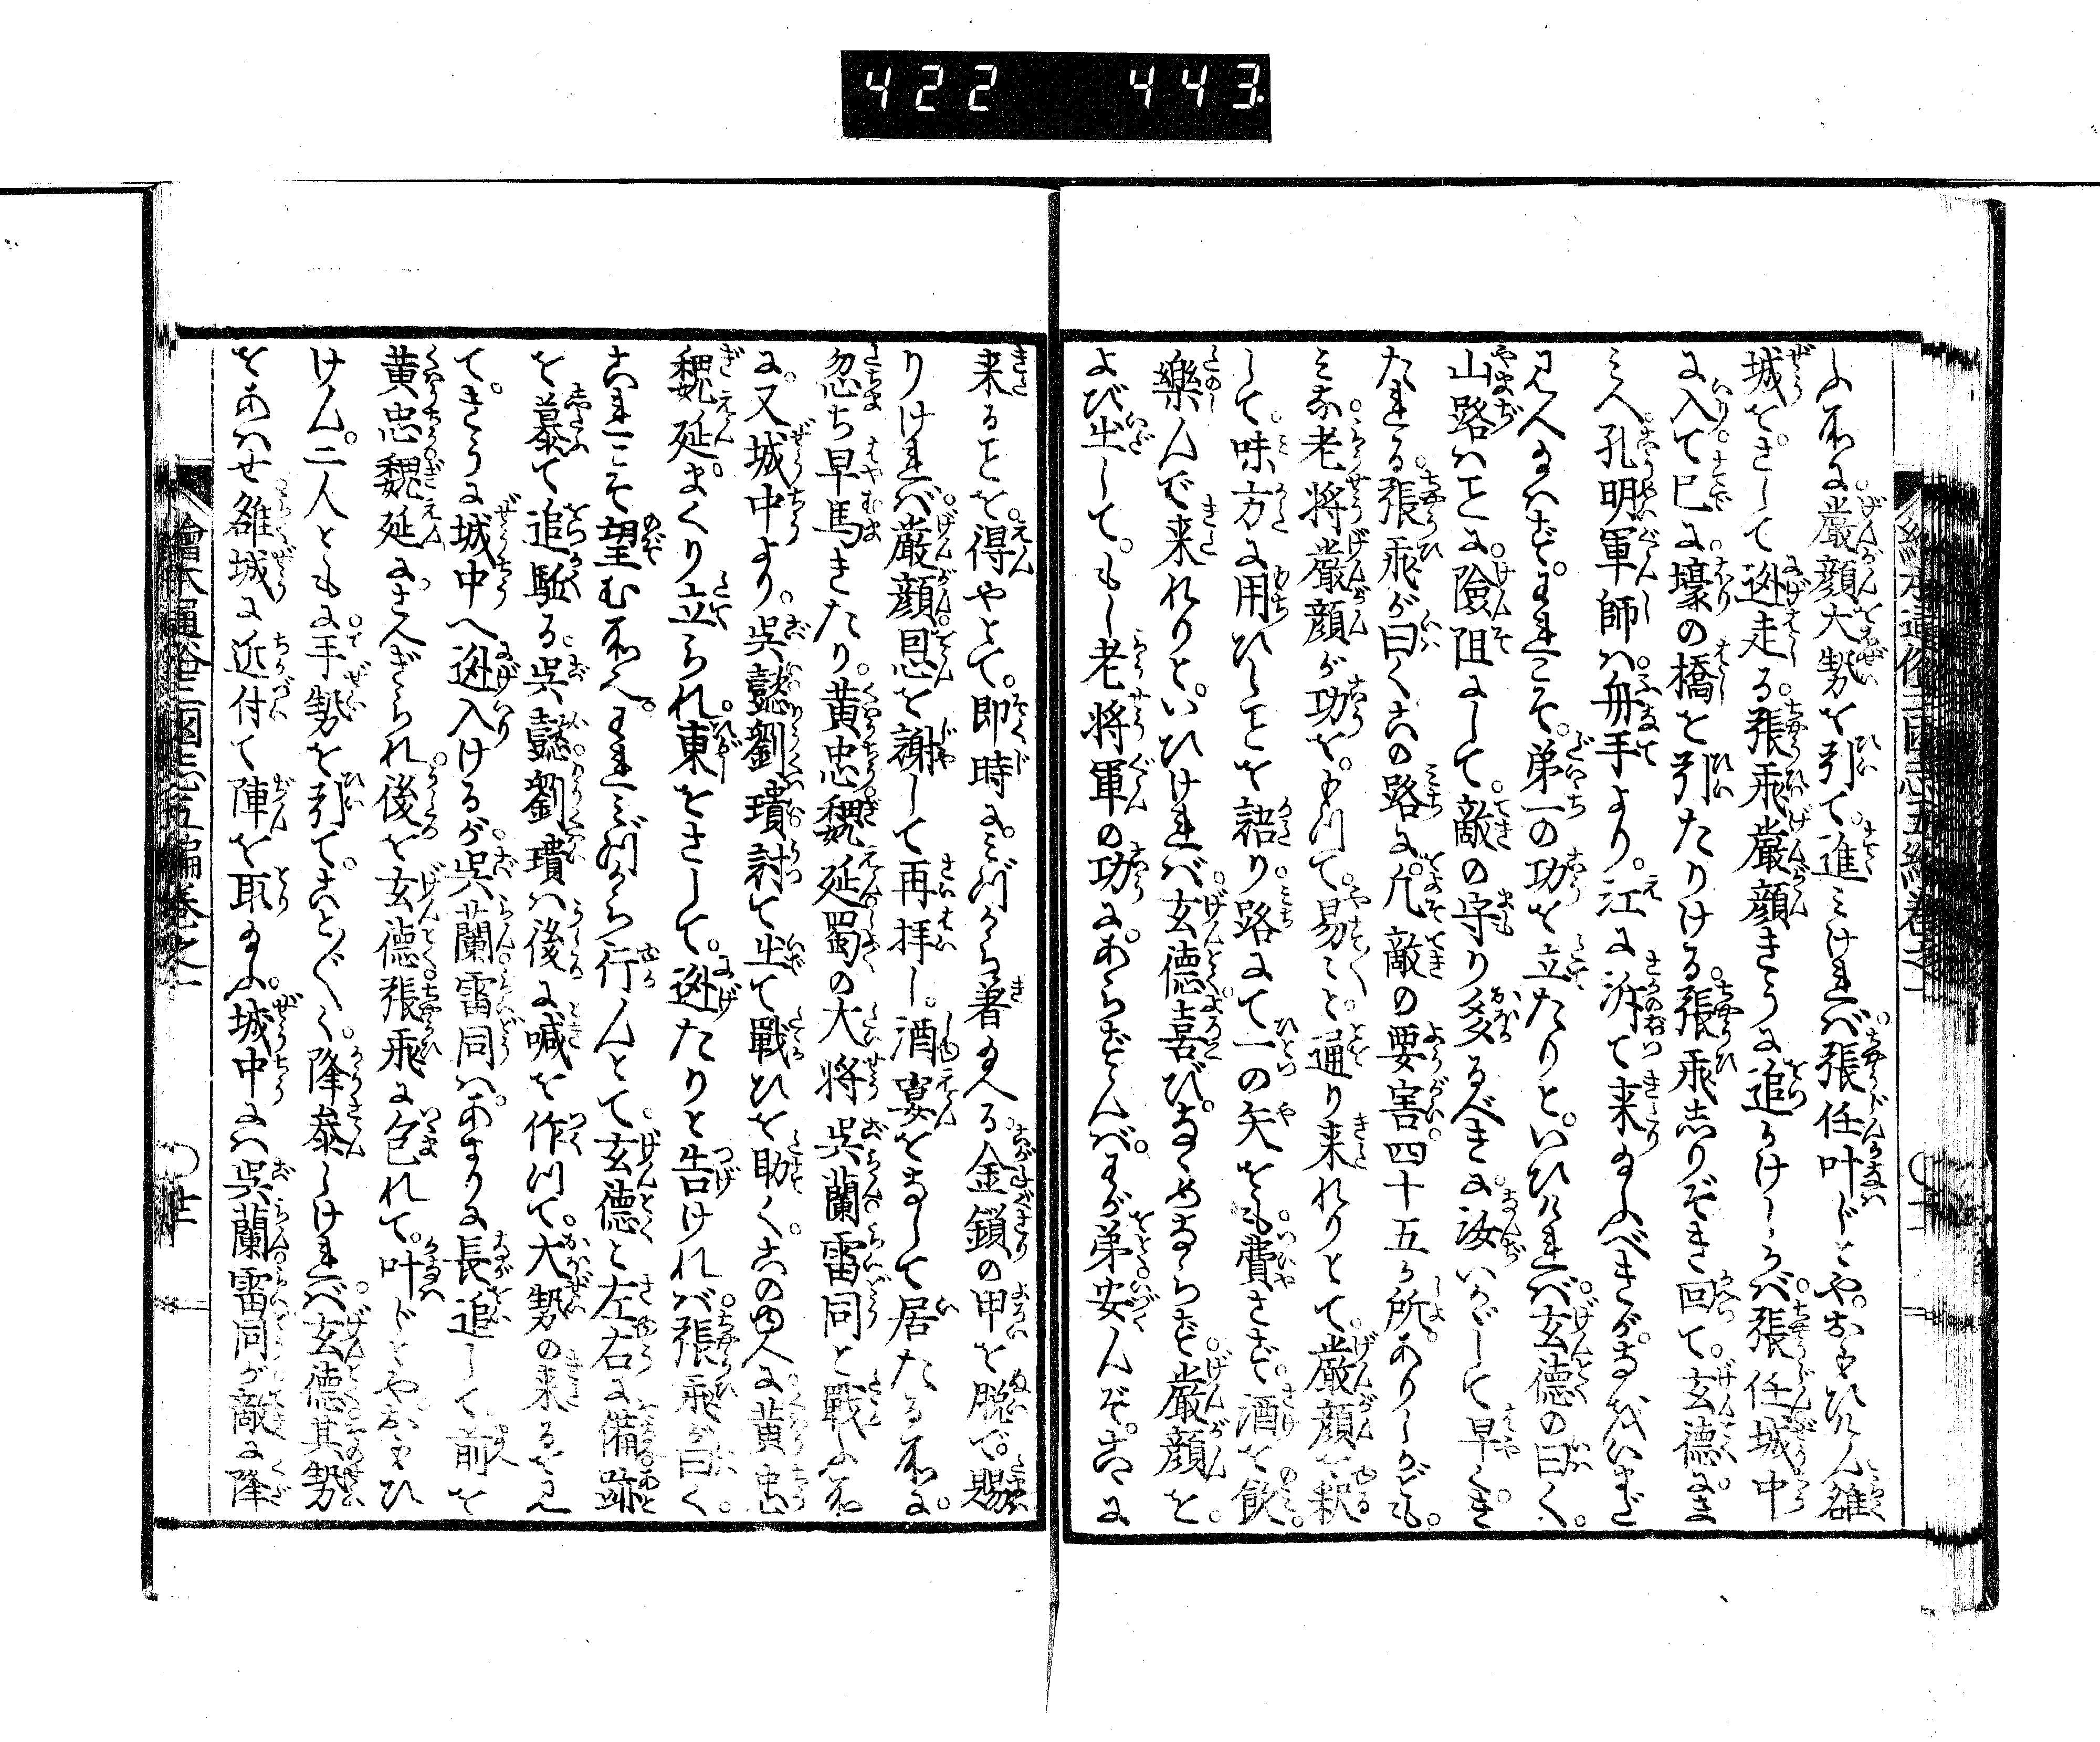 422 443
ふ所に。厳顔大勢を引て。進みければ。張任叶ジとや。おもひけん。雒
城をさして迯走る。張飛厳顔きうに追かけしかば。張任城中
に入て。已に。壕の橋を引たりける。張飛志りぞき回て。玄德にま
みへ。孔明軍師ハ。舟手より。江に泝て来り給ふべきが。なをいまだ
見へ給ハず。われこそ。第一の功を立たりと。いひければ。玄德の曰く。
山路ハことに。險阻にして。敵の守り多るべきに。汝いかにして早くき
たれる。張飛が曰く。この路に。凡敵の要害四十五か所。ありしかども。
みな。老将厳顔が功を。もつて。易〻と。通り来れりとて。厳顔を釈
して。味方に用ひしことを語り。路にて一の矢をも。費さず。酒を飲。
樂んで来れりと。いひければ。玄德喜び。なゝめならず。厳顔を。
よび出して。もし老将軍の功に。あらずんバ。わが弟安んぞ。こゝに
来ることを。得んやとて。即時に。みづから著給へる。金鎖の甲を脱で。賜
りければ。厳顔。恩を謝して再拝し。酒宴をなして居たる所に。
忽ち早馬きたり。黄忠魏延。蜀の大将呉蘭雷同と戰ふ所
に。又城中より。呉懿劉璝討て出て戰ひを助く。この四人に黄忠
魏延。まくり立られ。東をさして。迯たりと告けれバ。張飛が曰く。
これこそ望む所へ。われみづから行んとて。玄德と左右に備。跡
を慕て追駈る。呉懿。劉璝ハ後に喊を作つて。大勢の来るを見
て。きうに城中へ迯入けるが。呉蘭雷同ハ。あまりに長追して前を
黄忠魏延に。さへぎられ。後を玄德張飛に包れて。叶ジとや。おもひ
けん。二人ともに。手勢を引て。こと〴〵く。降參しければ。玄德其勢
をあハせ。雒城に近付て陣を取給ふ。城中にハ呉蘭雷同が敵に降
繪本通俗三國志五編卷之